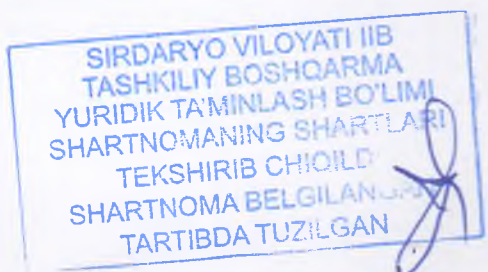 SIRDARYO VILOYATI IIB
TASHKILIY BOSHQARMA
YURIDIK TA'MINLASH BO'LIMI
SHARTNOMANING SHARTLARI
TEKSHIRIB CHIQILD
SHARTNOMA
TARTIBDA TUZILGAN